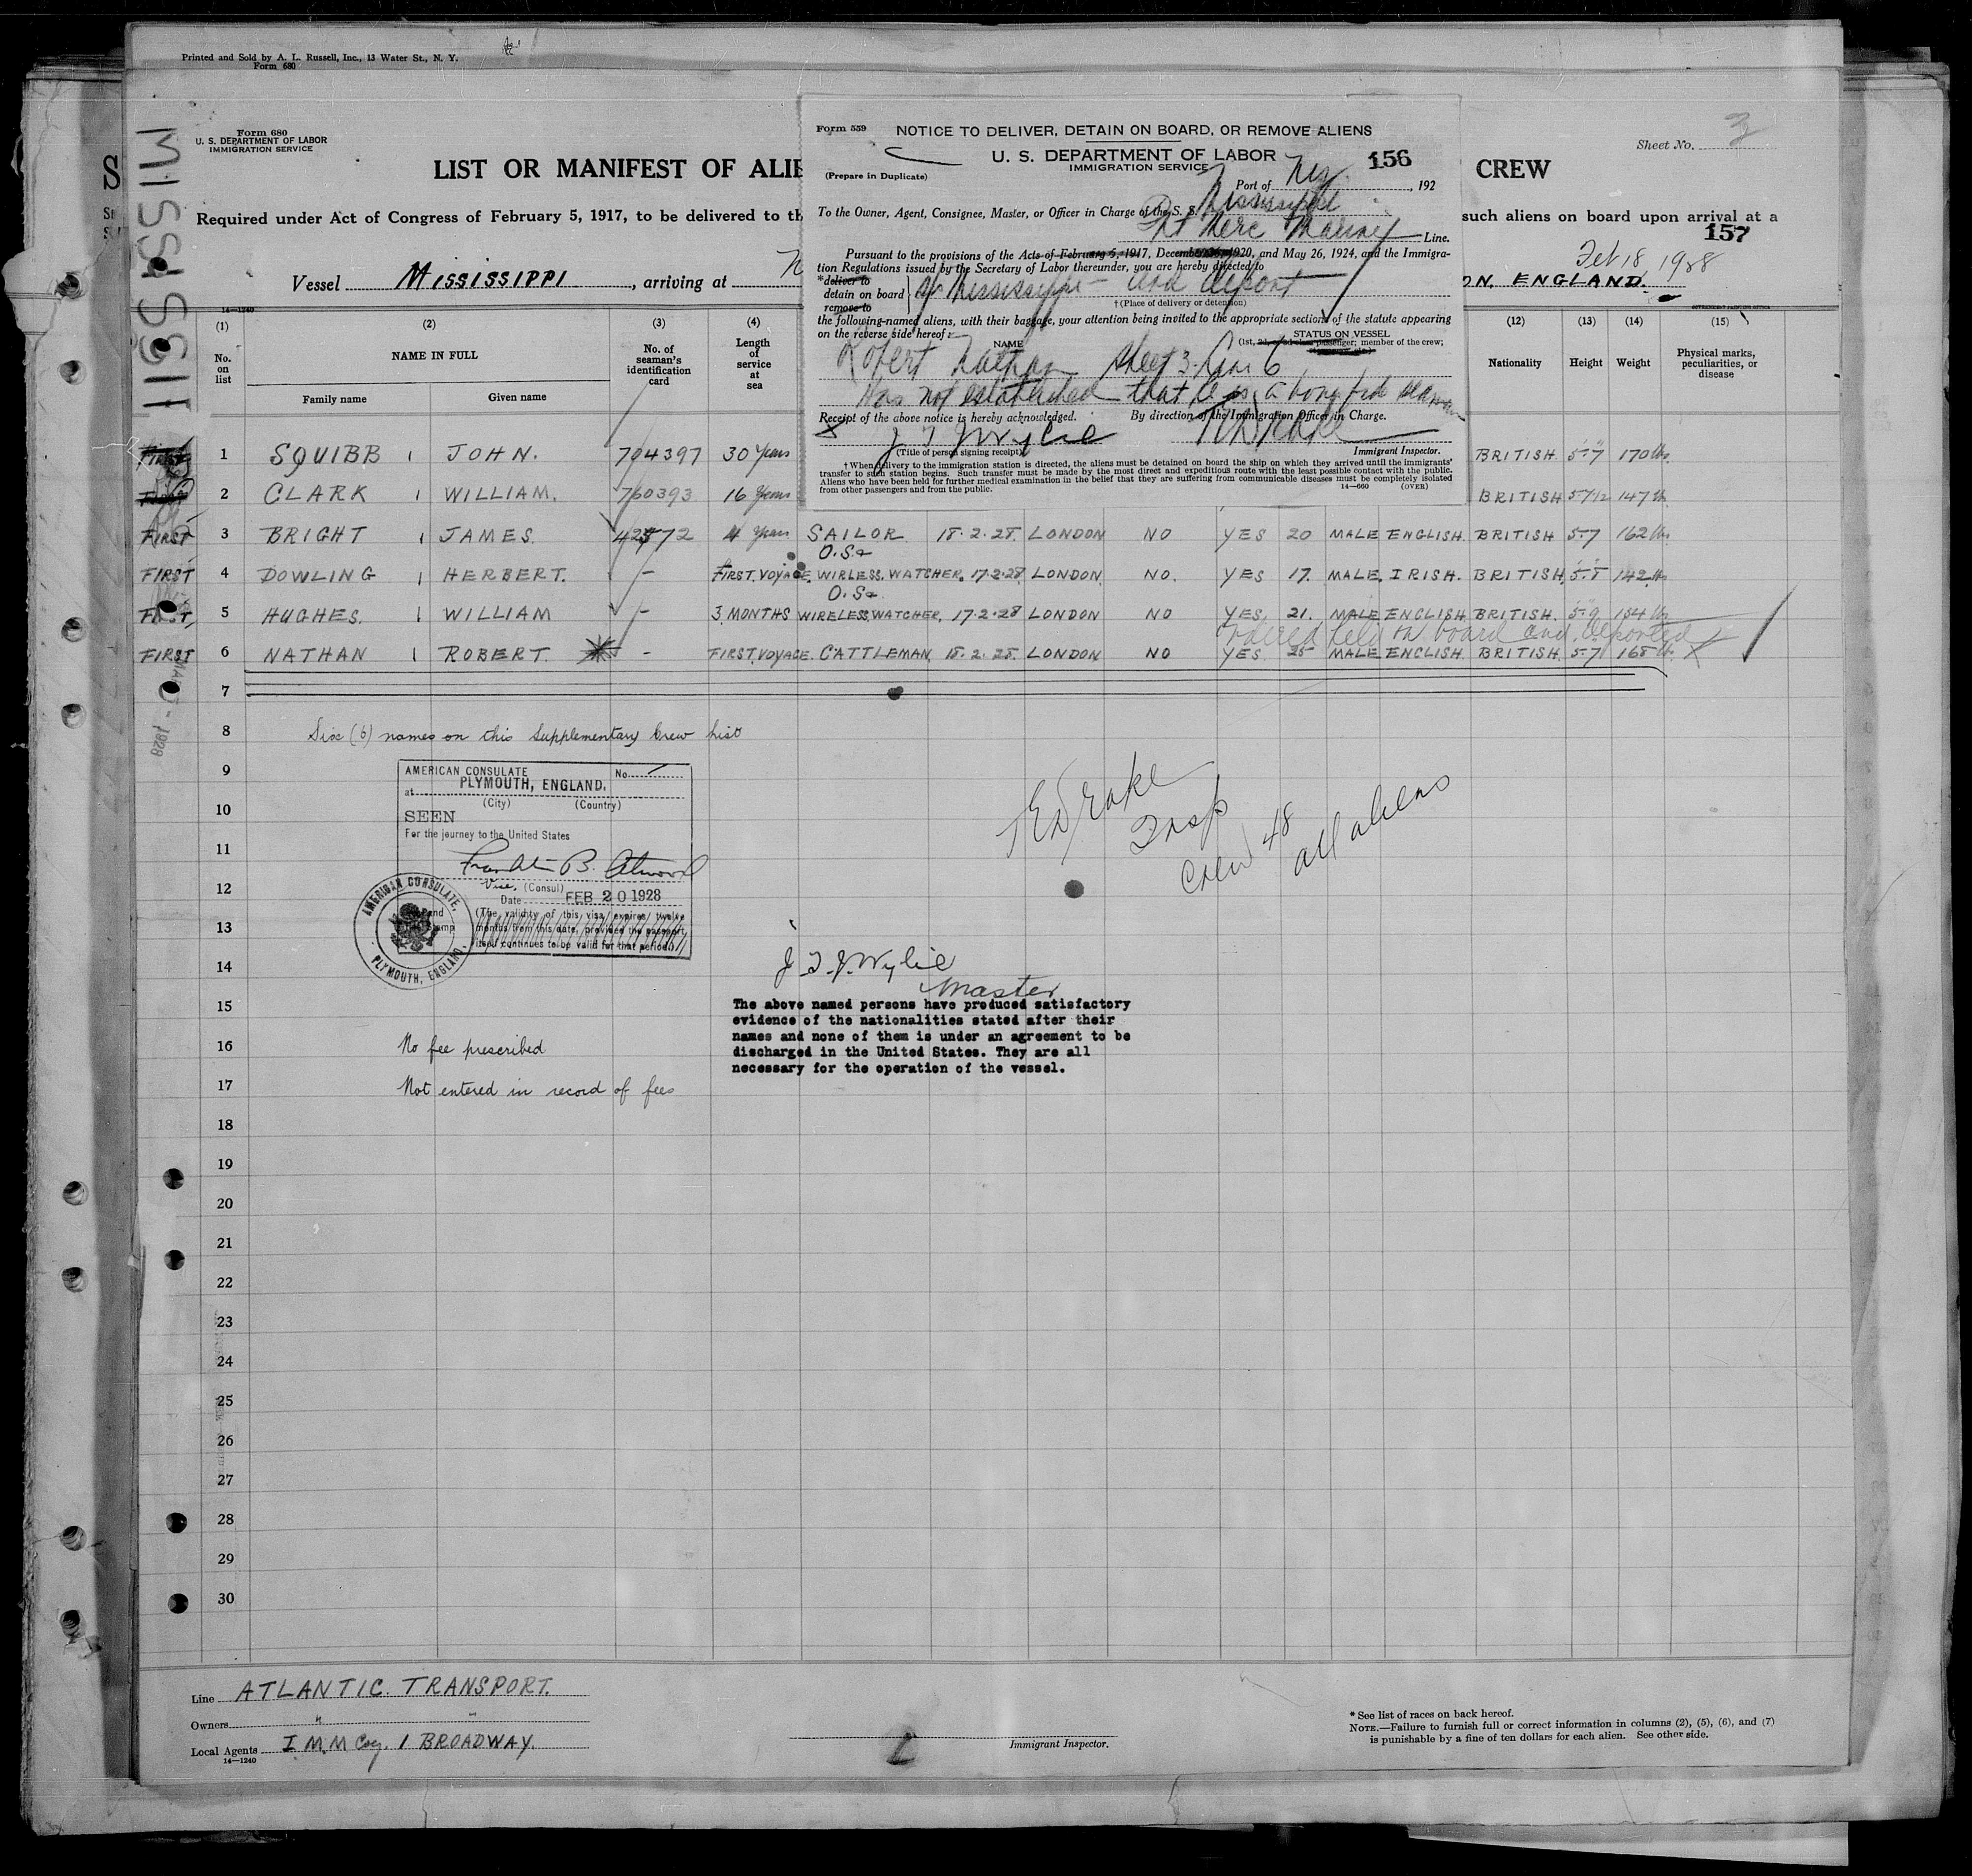 Printed and Sold by A. L. Russell, Inc., 13 Water St., N. Y.
Form 680
MISSISSIPPI
Form 680
U. S. DEPARTMENT OF LABOR
IMMIGRATION SERVICE
LIST OR MANIFEST OF ALIE
CREW
Sheet No. 3
Required under Act of Congress of February 5, 1917, to be delivered to th
such aliens on board upon arrival at a
157
Vessel MISSISSIPPI, arriving at
Feb 18, 1928
ON, ENGLAND.
Form 559
NOTICE TO DELIVER, DETAIN ON BOARD, OR REMOVE ALIENS
U. S. DEPARTMENT OF LABOR
IMMIGRATION SERVICE
156
(Prepare in Duplicate)
Port of N.Y., 192
To the Owner, Agent, Consignee, Master, or Officer in Charge of the S. S. Mississippi
Int Merc Marine Line.
Pursuant to the provisions of the Acts of February 5, 1917, December 26, 1920, and May 26, 1924, and the Immigra-
tion Regulations issued by the Secretary of Labor thereunder, you are hereby directed to
*deliver to
detain on board
remove to
SS Mississippi - and deport
† (Place of delivery or detention)
the following-named aliens, with their baggage, your attention being invited to the appropriate sections of the statute appearing
on the reverse side hereof:
NAME
STATUS ON VESSEL
(1st, 2d, or 3d class passenger; member of the crew;
Robert Nathan Sheet 3. Line 6
Has not established that he is a bona fide seaman
Receipt of the above notice is hereby acknowledged.
By direction of the Immigration Officer in Charge.
X J T J Wylie
(Title of person signing receipt)
Drake
Immigrant Inspector.
† When delivery to the immigration station is directed, the aliens must be detained on board the ship on which they arrived until the immigrants'
transfer to such station begins. Such transfer must be made by the most direct and expeditious route with the least possible contact with the public.
Aliens who have been held for further medical examination in the belief that they are suffering from communicable diseases must be completely isolated
from other passengers and from the public.
14—660 (OVER)
14—1240
(1) (2) (3) (4) (12) (13) (14) (15)
No. on list
NAME IN FULL
Family name Given name
No. of seaman's identification card
Length of service at sea
Nationality Height Weight
Physical marks, peculiarities, or disease
FIRST 1 SQUIBB JOHN. 704397 30 Years BRITISH 5-7 170 lbs
FIRST 2 CLARK WILLIAM. 760393 16 Years BRITISH 5-7½ 147 lb
FIRST 3 BRIGHT JAMES. 42572 4 Years SAILOR 18.2.28. LONDON NO YES 20 MALE ENGLISH. BRITISH 5-7 162 lbs
O.S.
FIRST 4 DOWLING HERBERT. - FIRST VOYAGE. WIRLESS. WATCHER. 17.2.28. LONDON. NO. YES 17. MALE. IRISH. BRITISH 5-8 142 lbs
O.S.
FIRST, 5 HUGHES. WILLIAM - 3 MONTHS WIRELESS WATCHER. 17.2.28 LONDON NO YES 21. MALE ENGLISH BRITISH. 5-9 154 lbs
Ordered held on board and deported
FIRST 6 NATHAN ROBERT. - FIRST VOYAGE. CATTLEMAN. 18.2.28. LONDON NO YES. 25 MALE ENGLISH. BRITISH. 5-7 168 lb. X
7
8 Six (6) names on this Supplementary Crew List
9
10
11
12
13
14
15
16
17
18
19
20
21
22
23
24
25
26
27
28
29
30
AMERICAN CONSULATE No.
at PLYMOUTH, ENGLAND.
(City) (Country)
SEEN
For the journey to the United States
Franklin B. Atwood
Vice, (Consul)
Date FEB 20 1928
(The validity of this visa expires twelve
months from this date, provided the passport
itself continues to be valid for that period)
AMERICAN CONSULATE,
PLYMOUTH, ENGLAND.
Drake
Insp
Crew 48
all aliens
J. T. J. Wylie
Master
The above named persons have produced satisfactory
evidence of the nationalities stated after their
names and none of them is under an agreement to be
discharged in the United States. They are all
necessary for the operation of the vessel.
No fee prescribed
Not entered in record of fees
Line ATLANTIC. TRANSPORT.
Owners " "
Local Agents I. M. M Coy. 1 BROADWAY.
14—1240
Immigrant Inspector.
* See list of races on back hereof.
NOTE.—Failure to furnish full or correct information in columns (2), (5), (6), and (7)
is punishable by a fine of ten dollars for each alien. See other side.